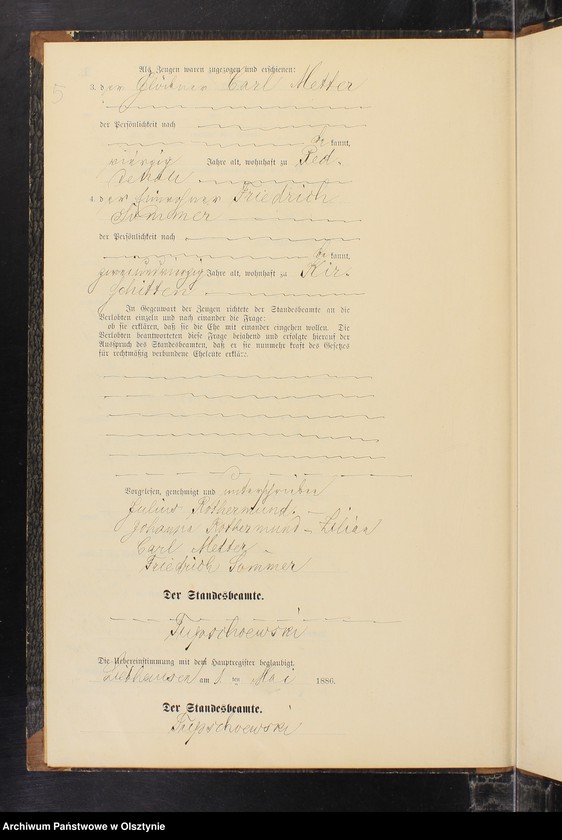 Als Zeugen waren zugezogen und erschienen:
3. der Carl Metter
der Persönlichkeit nach
kannt,
vierzig Jahre alt, wohnhaft zu
4. der Friedrich
Sommer
der Persönlichkeit nach
kannt,
Jahre alt, wohnhaft zu Kir-
schitten
In Gegenwart der Zeugen richtete der Standesbeamte an die
Verlobten einzeln und nach einander die Frage:
ob sie erklären, daß sie die Ehe mit einander eingehen wollen. Die
Verlobten beantworteten diese Frage bejahend und erfolgte hierauf der
Ausspruch des Standesbeamten, daß er sie nunmehr kraft des Gesetzes
für rechtmäßig verbundene Eheleute erkläre.
Vorgelesen, genehmigt und unterschrieben
Julius Rothermund.
Johanna Rothermund - Lilian
Carl Metter
Friedrich Sommer
Der Standesbeamte.
Die Uebereinstimmung mit dem Hauptregister beglaubigt.
am ten Mai 1886.
Der Standesbeamte.
Archiwum Państwowe w Olsztynie